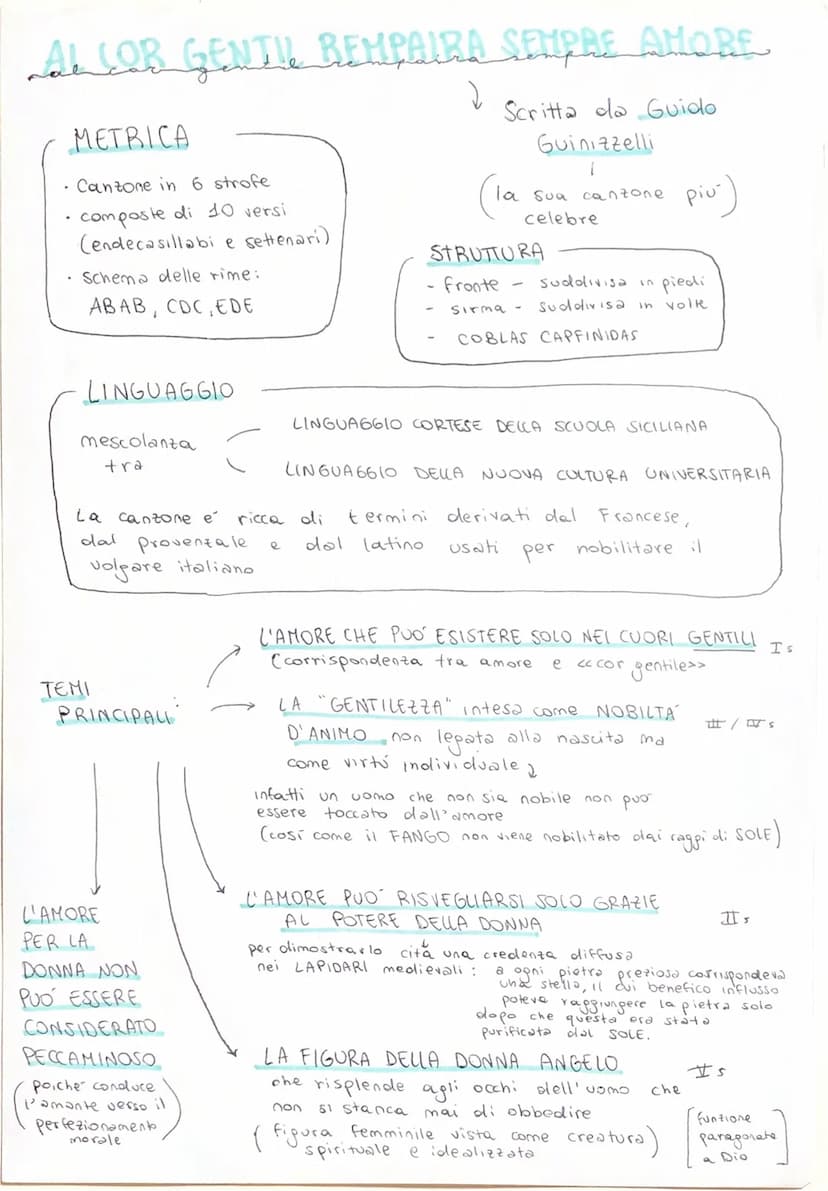 AL COR GENTIL REMPAIRA SEMPRE AMORE
al cor gentil rempaira sempre amore
Scritta da Guido
Guinizzelli
(la sua canzone più
celebre)
METRICA
· Canzone in 6 strofe
· composte di 10 versi
(endecasillabi e settenari)
· Schema delle rime:
ABAB, CDC, EDE
STRUTTURA
- fronte - suddivisa in piedi
- sirma - suddivisa in volte
- COBLAS CAPFINIDAS
LINGUAGGIO
mescolanza
tra
LINGUAGGIO CORTESE DELLA SCUOLA SICILIANA
LINGUAGGIO DELLA NUOVA CULTURA UNIVERSITARIA
La canzone e' ricca di termini derivati dal Francese,
dal provenzale e dal latino usati per nobilitare il
volgare italiano
TEMI
PRINCIPALI:
L'AMORE CHE PUO' ESISTERE SOLO NEI CUORI GENTILI I s
(corrispondenza tra amore e <<cor gentile>>
LA "GENTILEZZA" intesa come NOBILTA'
D'ANIMO, non legata alla nascita ma III / IV s
come virtù individuale
infatti un uomo che non sia nobile non può
essere toccato dall'amore
(così come il FANGO non viene nobilitato dai raggi di SOLE)
L'AMORE PUO' RISVEGLIARSI SOLO GRAZIE
AL POTERE DELLA DONNA II s
per dimostrarlo cita una credenza diffusa
nei LAPIDARI medievali: a ogni pietra preziosa corrispondeva
una stella, il cui benefico influsso
poteva raggiungere la pietra solo
dopo che questa era stata
purificata dal SOLE.
LA FIGURA DELLA DONNA ANGELO V s
che risplende agli occhi dell'uomo che
non si stanca mai di obbedire
(figura femminile vista come creatura)
spirituale e idealizzata
[funzione
paragonata
a Dio]
L'AMORE
PER LA
DONNA NON
PUO' ESSERE
CONSIDERATO
PECCAMINOSO
(poiche' conduce
l'amante verso il
perfezionamento
morale)